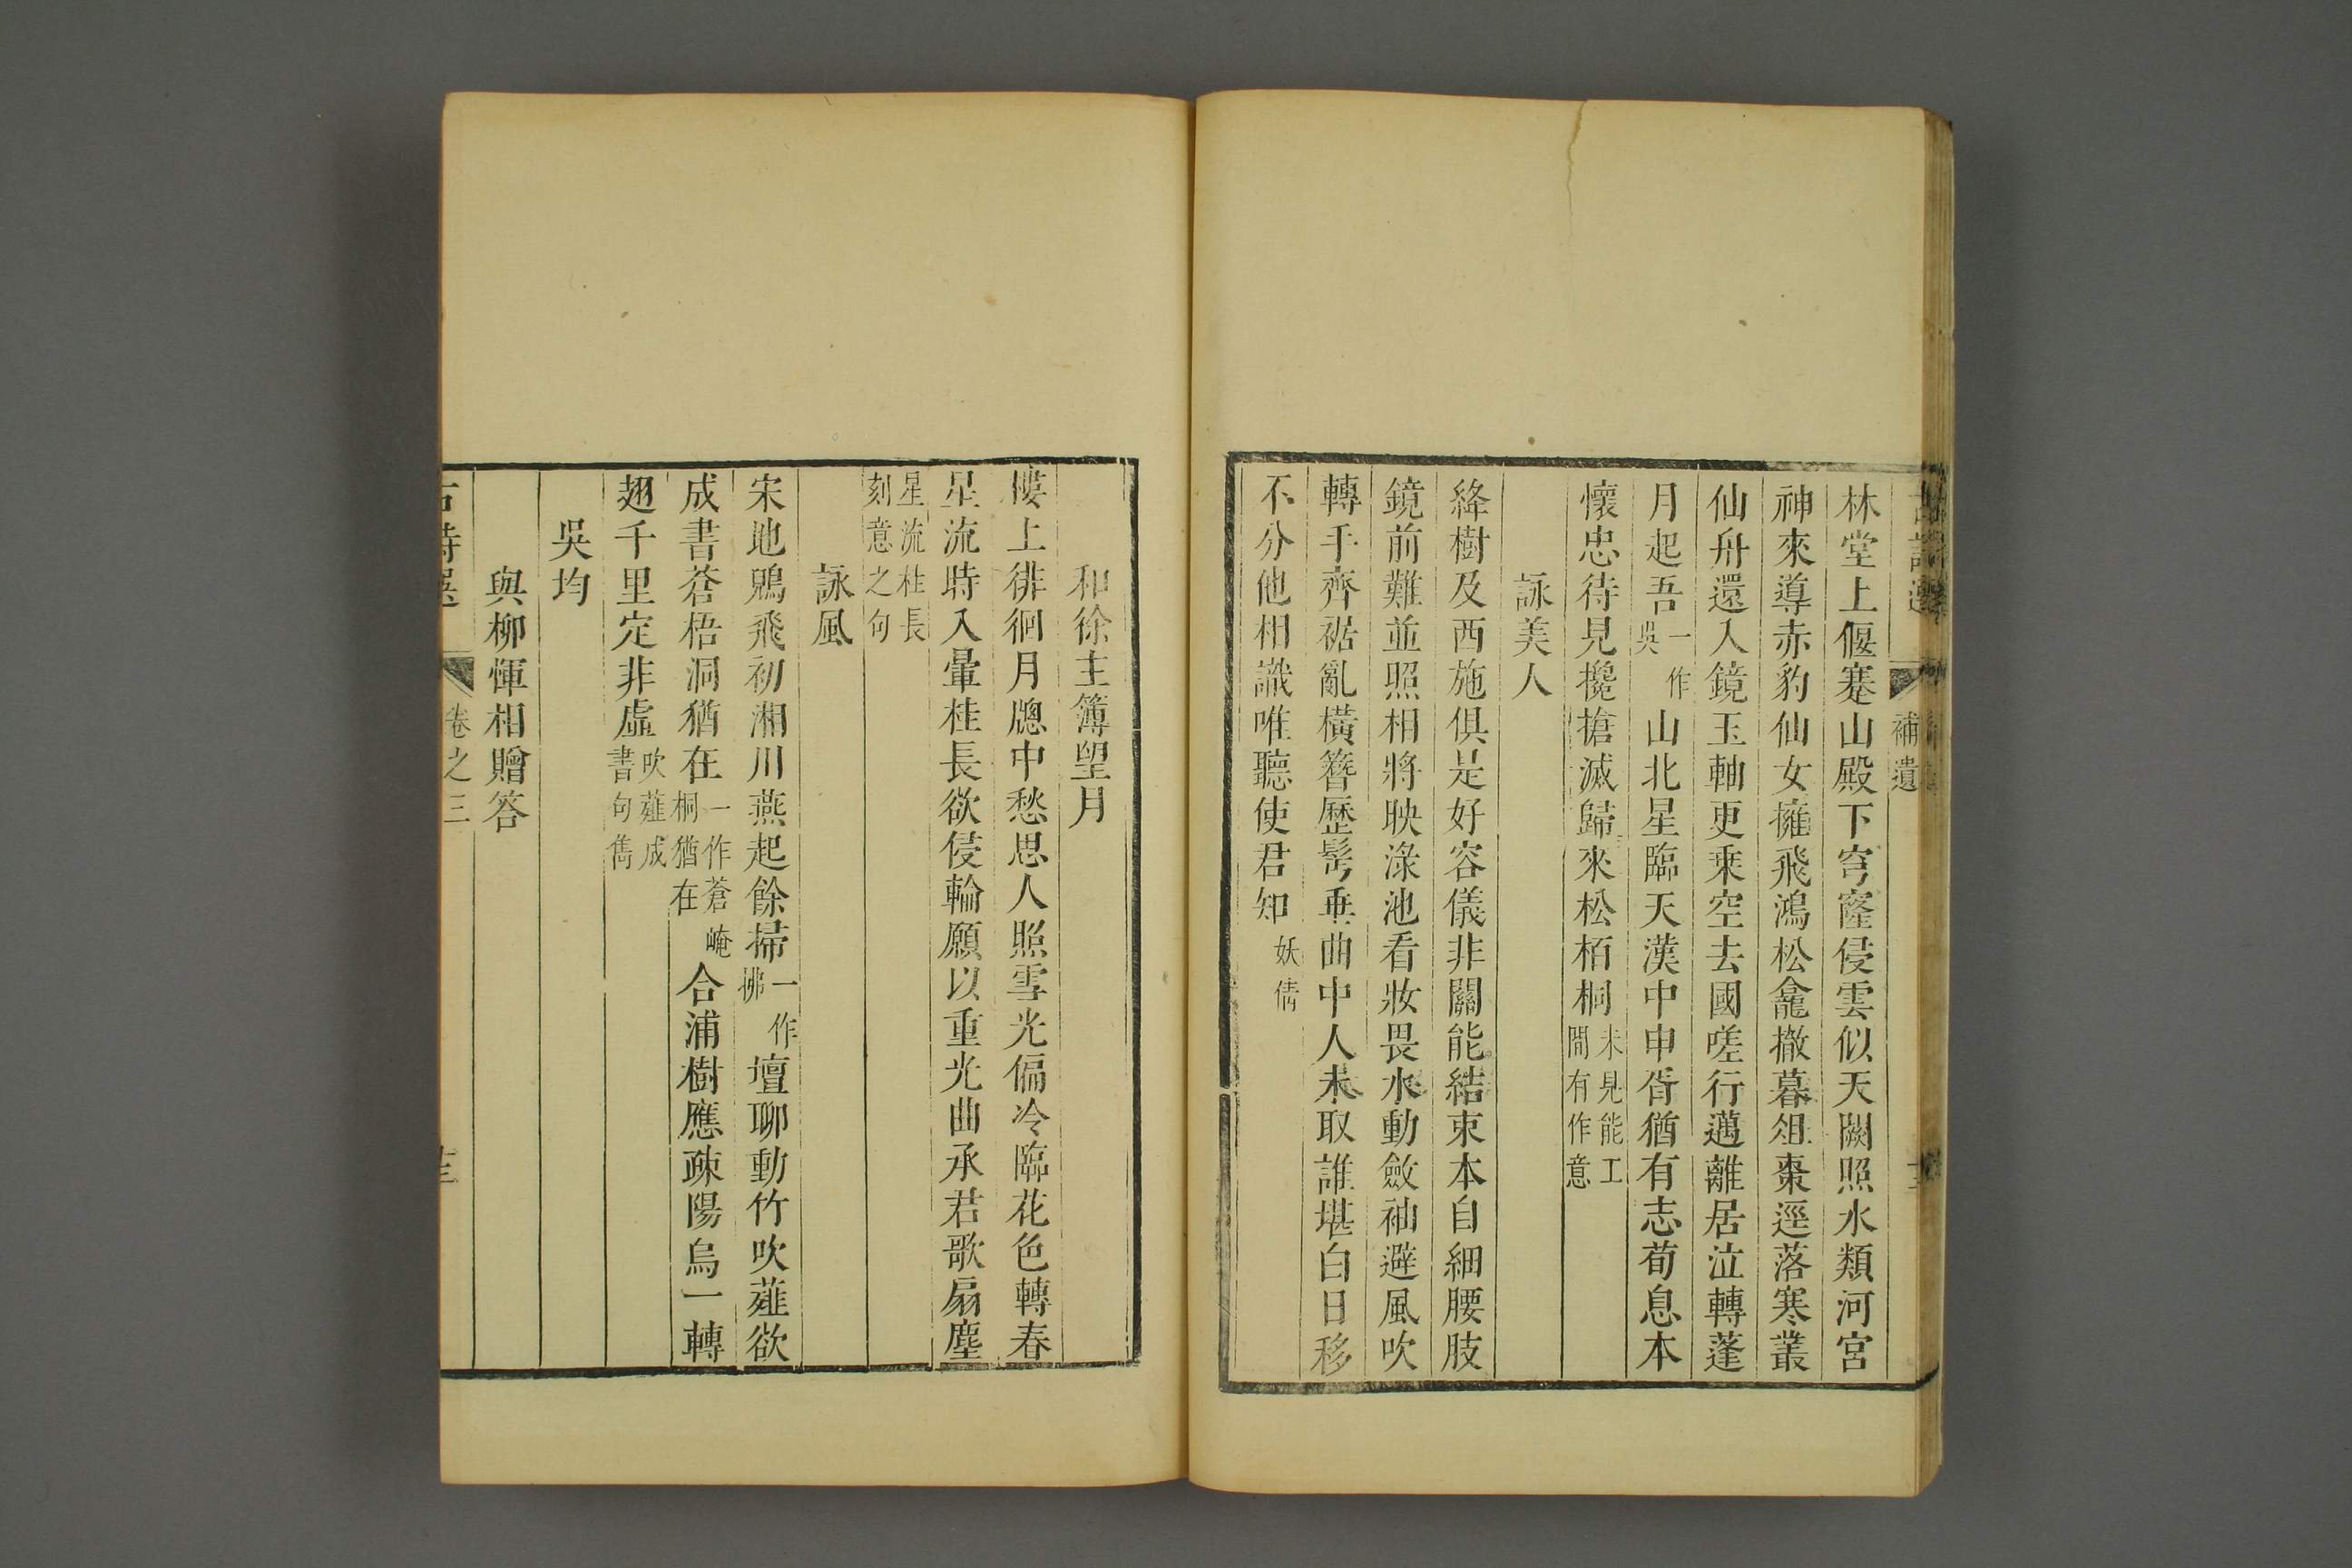 補遺
林堂上偃蹇山殿下穹窿侵雲似天闕照水類河宮
神來導赤豹仙女擁飛鴻松龕撤暮俎棗逕落寒叢
仙舟還入鏡玉軸更乘空去國嗟行邁離居泣轉蓬
月起吾一作吳山北星臨天漢中申胥猶有志荀息本
懷忠待見攙搶滅歸來松栢桐未見能工間有作意
詠美人
絳樹及西施俱是好容儀非關能結束本自細腰肢
鏡前難並照相將映淥池看妝畏水動斂袖避風吹
轉手齊裾亂橫簪歷髩垂曲中人未取誰堪白日移
不分他相識唯聽使君知妖倩
和徐主簿望月
樓上徘徊月牕中愁思人照雪光偏冷臨花色轉春
星流時入暈桂長欲侵輪願以重光曲承君歌扇塵
星流桂長刻意之句
詠風
宋地鶂飛初湘川燕起餘掃一作拂壇聊動竹吹薤欲
成書蒼梧洞猶在一作蒼崦桐猶在合浦樹應疎陽烏一轉
翅千里定非虛吹薤成書句雋
吳均
與柳惲相贈答
古詩選 卷之三